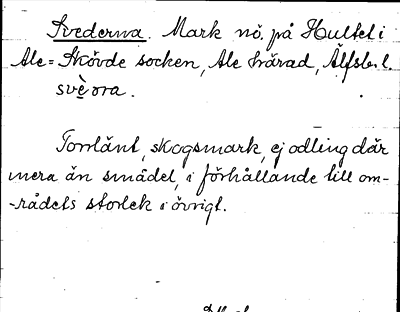 Svederna. Mark nö. på Hultet i
Ale=Skövde socken, Ale härad, Älfsb. l.
svèǫra.
Torrlänt, skogsmark, ej odling där
mera än smådel, i förhållande till om-
-rådets storlek i övrigt.